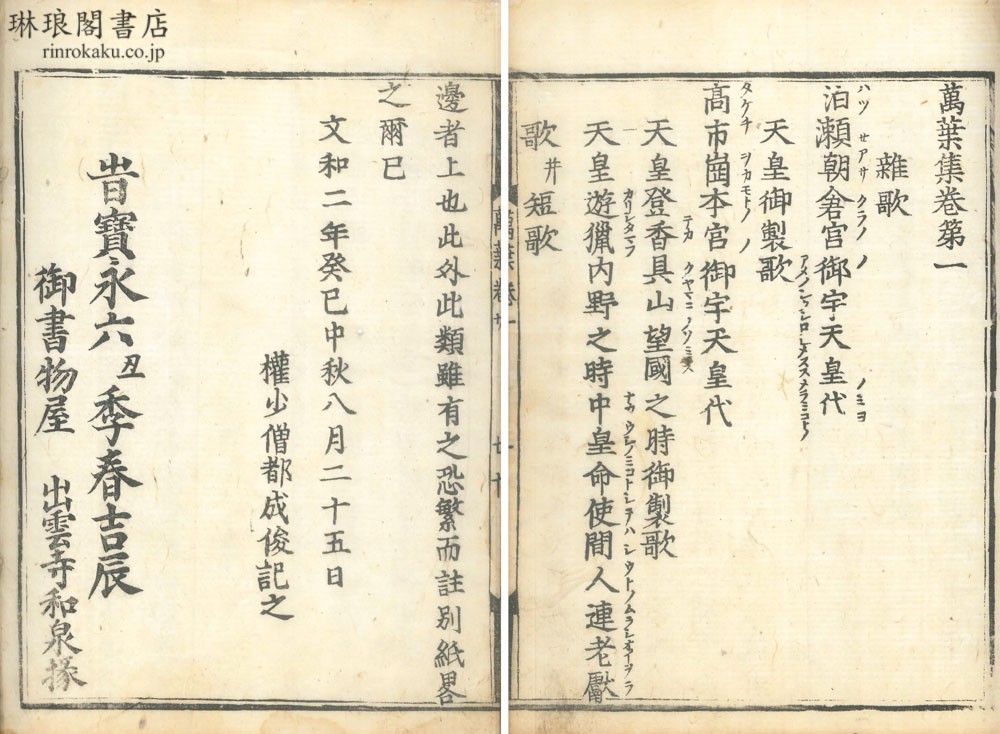 琳琅閣書店
rinrokaku.co.jp
萬葉集卷第一
雜歌
泊瀬朝倉宮御宇天皇代
天皇御製歌
高市崗本宮御宇天皇代
天皇登香具山望國之時御製歌
天皇遊獵内野之時中皇命使間人連老獻
歌并短歌
萬葉卷
邊者上也此外此類雖有之恐繁而註別紙畧
之爾已
文和二年癸巳中秋八月二十五日
權少僧都成俊記之
旹寶永六丑季春吉辰
御書物屋 出雲寺和泉掾